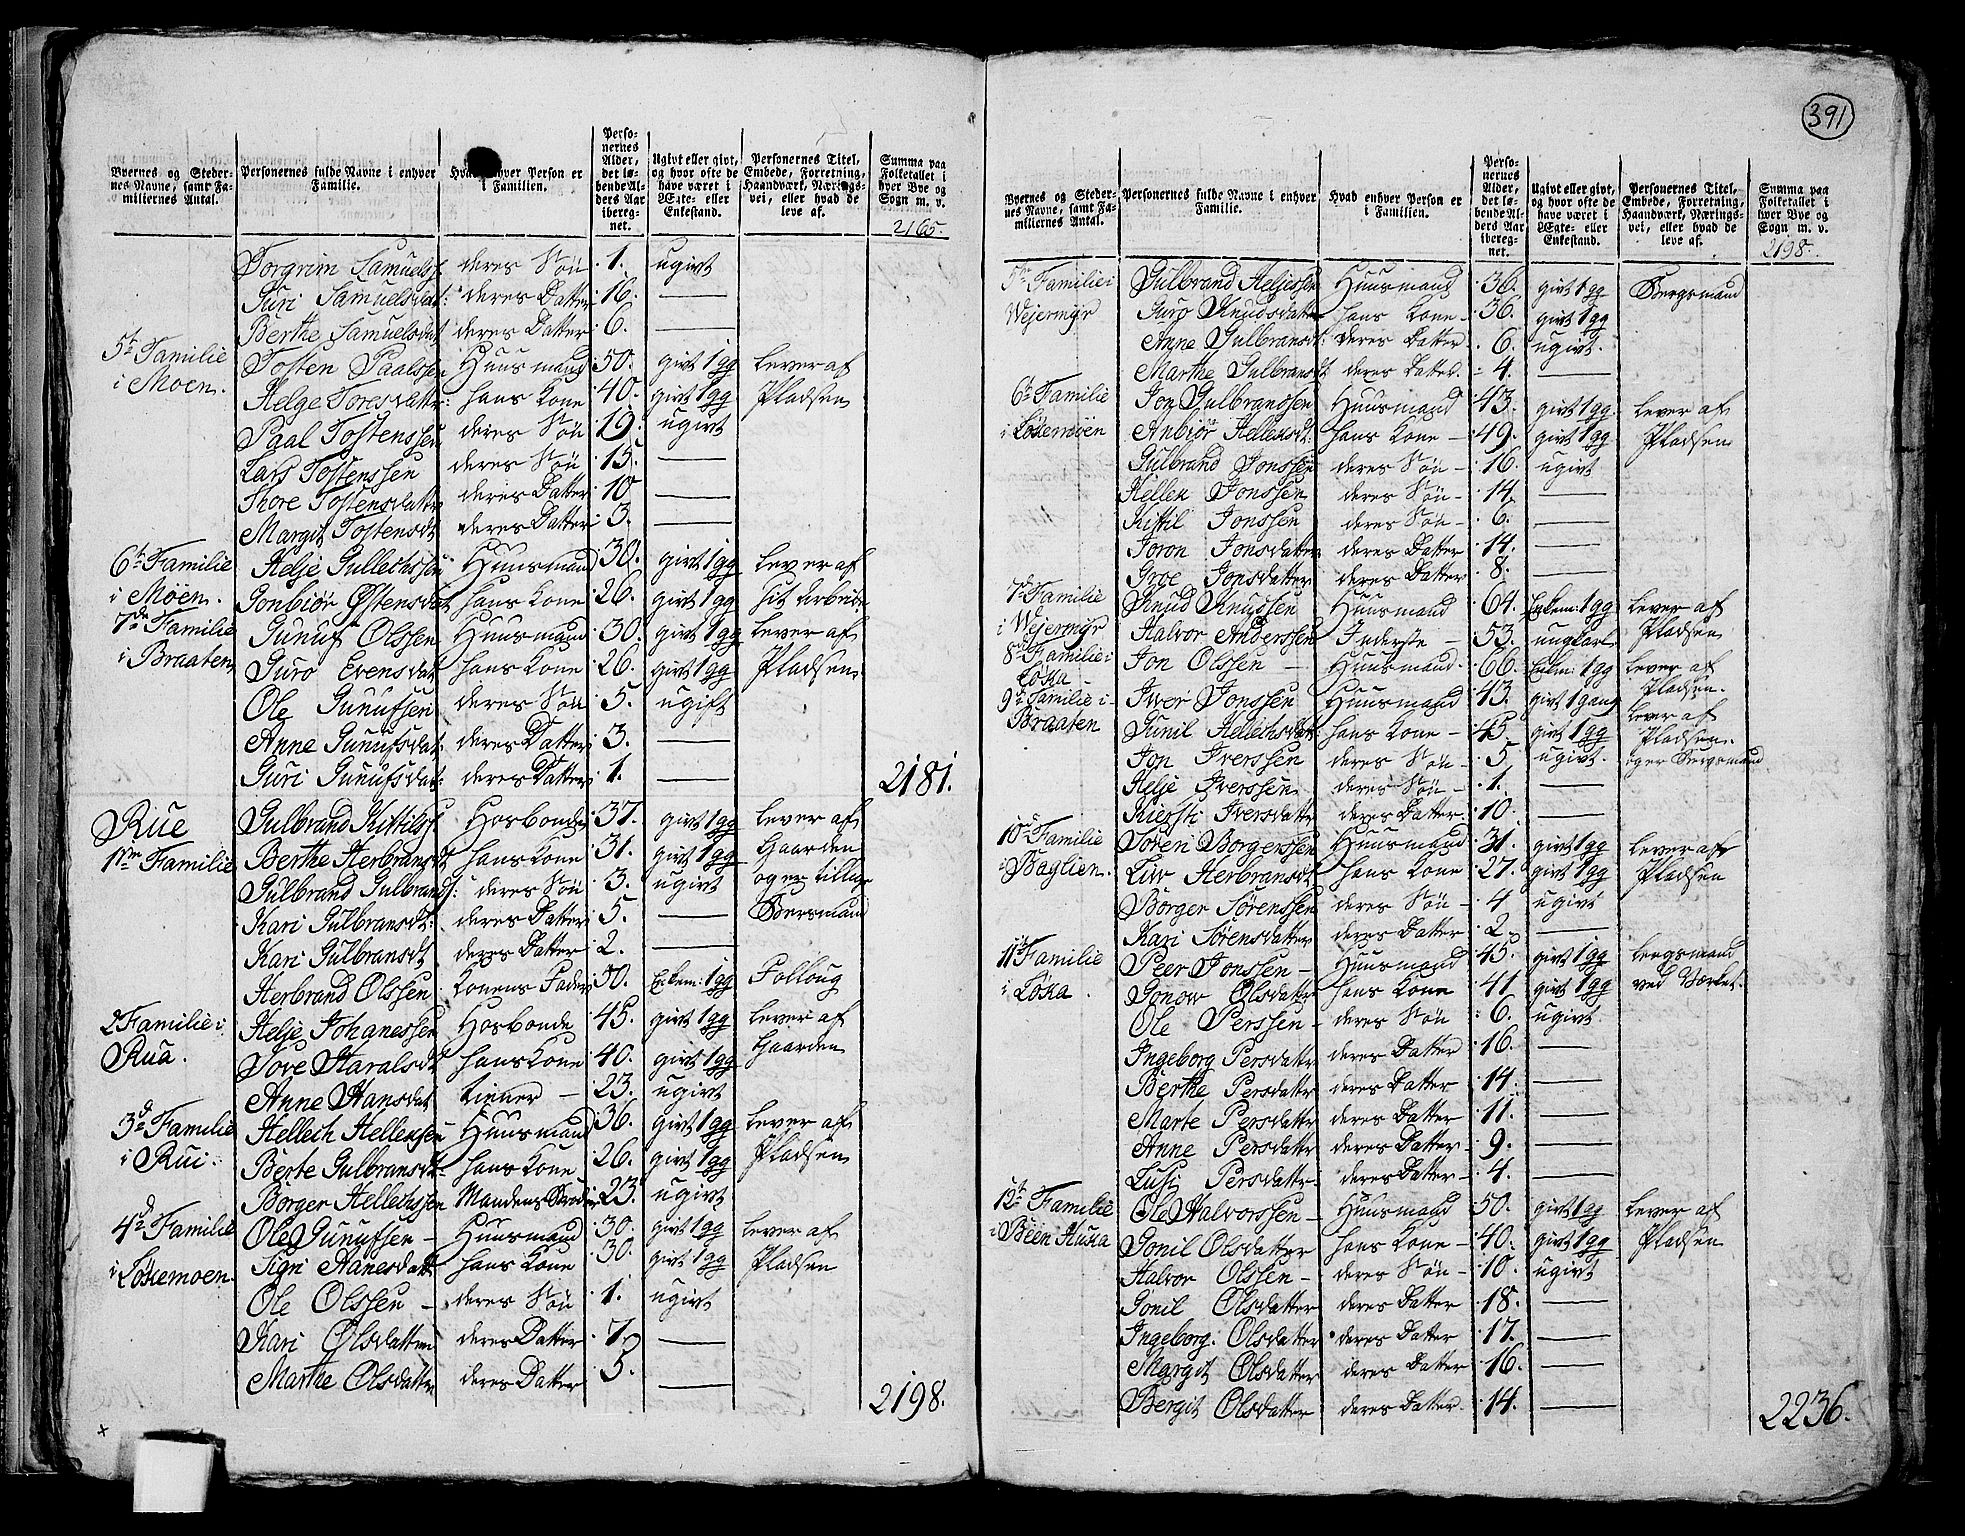 391
Byernes og Steder-
nes Navne, samt Fa-
miliernes Antal.
Personernes fulde Navne i enhver
Familie.
Hvad enhver Person er
i Familien.
Perso-
nernes
Alder,
det lø-
bende Al-
ders Aar
ibereg-
net.
Ugivt eller givt,
og hvor ofte de
have været i
Ægte- eller
Enkestand.
Personernes Titel,
Embede, Forretning,
Haandværk, Nærings-
vei, eller hvad de
leve af.
Summa paa
Folketallet i
hver Bye og
Sogn m. v.
2165.
Torgrim Samuelss. deres Søn 1. ugivt
Guri Samuelsdat: deres Datter 16. —
Berthe Samuelsdat deres Datter 6. —
5te Familie Tosten Paalssen Huusmand 50. givt 1 gg lever af
i Moen. Helge Toresdatter hans Kone 40. givt 1 gg Pladsen
Paal Tostenssen deres Søn 19. ugivt
Lars Tostenssen deres Søn 15. —
Thore Tostensdatter deres Datter 10 —
Margit Tostensdt deres Datter 3. —
6te Familie Helje Gullechssen Huusmand 30. givt 1 gg lever af
i Möen. Gonbiör Østensdat hans Kone 26. givt 1 gg sit Arbeide
7de Familie Gunuf Olssen Huusmand 30. givt 1 gg lever af
i Braaten Guro Evensdat hans Kone 26. givt 1 gg Pladsen
Ole Gunufsen deres Søn 5. ugift
Anne Gunufsdat: deres Datter 3. —
Guri Gunufsdat: deres Datter 1. — 2181.
Rue Gulbrand Kittilss. Hosbonde 37. givt 1 gg lever af
1ste Familie Berthe Herbransdt hans Kone 31. givt 1 gg Gaarden
Gulbrand Gulbrands: deres Søn 3. ugivt og er tillige
Kari Gulbransdt: deres Datter 5. — Bergmand
Kari Gulbransdt. deres Datter 2. —
Herbrand Olssen Konens Fader 50. Enkem: 1 gg Følloug
2 Familie i Helje Johanessen Hosbonde 45. givt 1 gg lever af
Rua. Tove Haralsdt hans Kone 40. givt 1 gg Gaarden
Anne Hansdat tiener — 23. ugivt
3d Familie Hellech Hellessen Huusmand 36. givt 1 gg lever af
i Rui. Berte Gulbransdt hans Kone 26. givt 1 gg Pladsen
Börger Hellechssen Mandens Broder 23. ugivt
4d Familie Ole Gunufsen — Huusmand 30. givt 1 gg lever af
i Lössemoen. Sigri Hanesdatt hans Kone 30. givt 1 gg Pladsen
Ole Olssen — deres Søn 1. ugivt
Kari Olsdatter deres Datter 7. —
Marthe Olsdatter deres Datter 5. — 2198.
Byernes og Steder-
nes Navne, samt Fa-
miliernes Antal.
Personernes fulde Navne i enhver
Familie.
Hvad enhver Person er
i Familien.
Perso-
nernes
Alder,
det lø-
bende Al-
ders Aar
ibereg-
net.
Ugivt eller givt,
og hvor ofte de
have været i
Ægte- eller
Enkestand.
Personernes Titel,
Embede, Forretning,
Haandværk, Nærings-
vei, eller hvad de
leve af.
Summa paa
Folketallet i
hver Bye og
Sogn m. v.
2198.
5te Familie i Gulbrand Heljessen Huusmand 36. givt 1 gg Bergsmand
Wejermyr Guro Knudsdatter hans Kone — 36. givt 1 gg
Anne Gulbransdt: deres Datter 6. ugivt.
Marthe Gulbransdt deres Datter 4. —
6te Familie Jon Gulbranssen Huusmand 43. givt 1 gg. lever af
i Lössemöen Anbiör Hellexsdt: hans Kone — 49. givt 1 gg Pladsen
Gulbrand Jonssen deres Søn — 16. ugivt
Hellek Jonssen deres Søn — 14. —
Kittil Jonssen deres Søn — 6. —
Joron Jonsdatter deres Datter 14. —
Groe Jonsdatter deres Datter 8. —
7de Familie Knud Knudssen Huusmand 64. Enkem: 1 gg lever af
i Wejermyr Halvor Anderssen Inderste — 53. ungkarl Pladsen
8de Familie i Jon Olssen — Huusmand. 66. Enkem: 1 gg lever af
Lösa Pladsen.
9de Familie i Iver Jonssen Huusmand 43. givt 1 gang lever af
Braaten Gunil Hellechsdat: hans Kone — 45. givt 1 gg Pladsen
Jon Iverssen deres Søn — 5 ugivt. og er Bergsmand
Helje Iverssen deres Søn — 1. —
Kiersti Iversdatter deres Datter 10. —
10de Familie Sören Borgerssen Huusmand 31. givt 1 gg lever af
i Baglien. Liv Herbransdt hans Kone 27. givt 1 gg Pladsen
Börger Sörenssen deres Søn — 4 ugivt
Kari Sörensdatter deres Datter 2. —
11te Familie Peer Jonssen — Huusmand 45. givt 1 gg bergsmand
i Lösa. Gonow Olsdatter hans Kone 41 givt 1 gg ved Værket.
Ole Perssen — deres Søn 6. ugivt
Ingeborg Persdatter deres Datter 16. —
Berthe Persdatter deres Datter 14. —
Marte Persdatter deres Datter 11. —
Anne Persdatter deres Datter 9. —
Lusi Persdatter deres Datter 4. —
12te Familie Ole Halvorssen — Huusmand 50. givt 1 gg lever af
i Been Husa Gonil Olsdatter hans Kone — 40. givt 1 gg Pladsen
Halvor Olssen — deres Søn — 10. ugivt
Gonil Olsdatter deres Datter 18. —
Ingeborg. Olsdatter deres Datter 17. —
Margit Olsdatter deres Datter 16. —
Bergit Olsdatter deres Datter 14. — 2236.